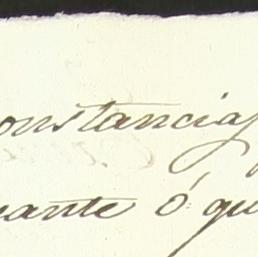 onstancias
uante ó qu